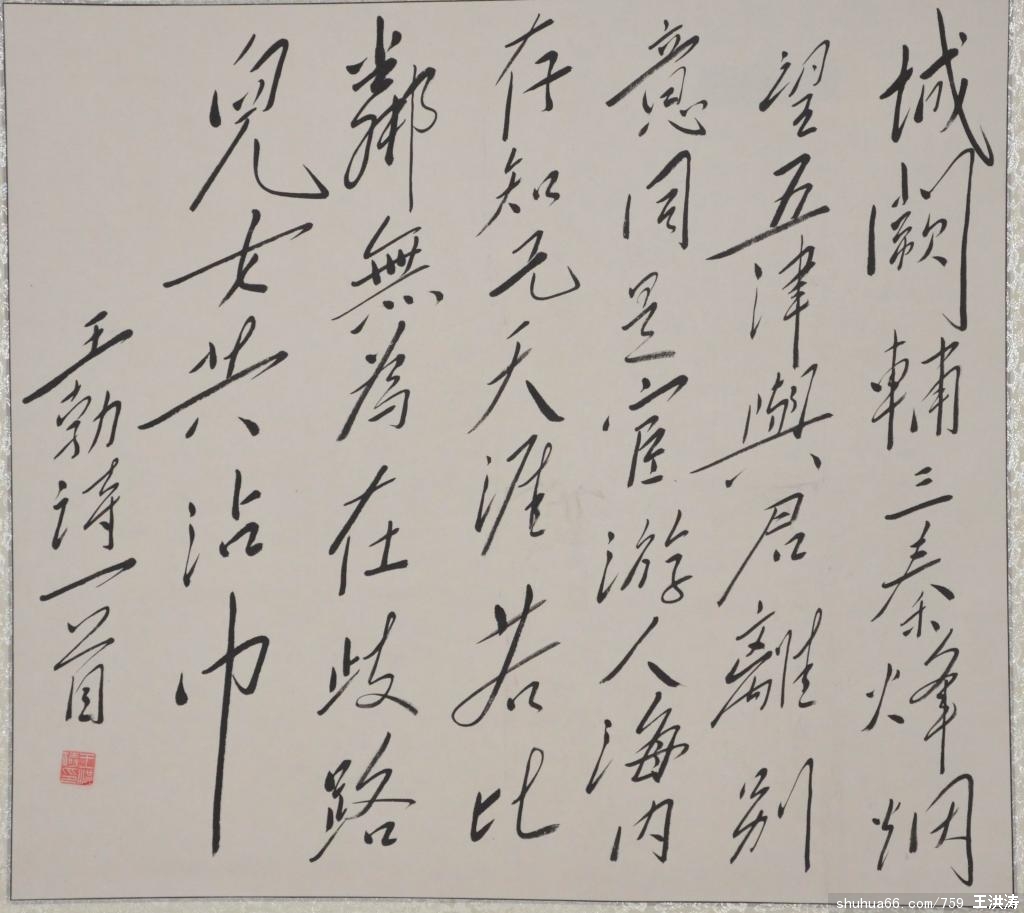 城闕輔三秦烽烟
望五津與君離別
意同是宦游人海内
存知己天涯若比
鄰無為在歧路
兒女共沾巾
王勃詩一首
shuhua66.com/759 王洪涛